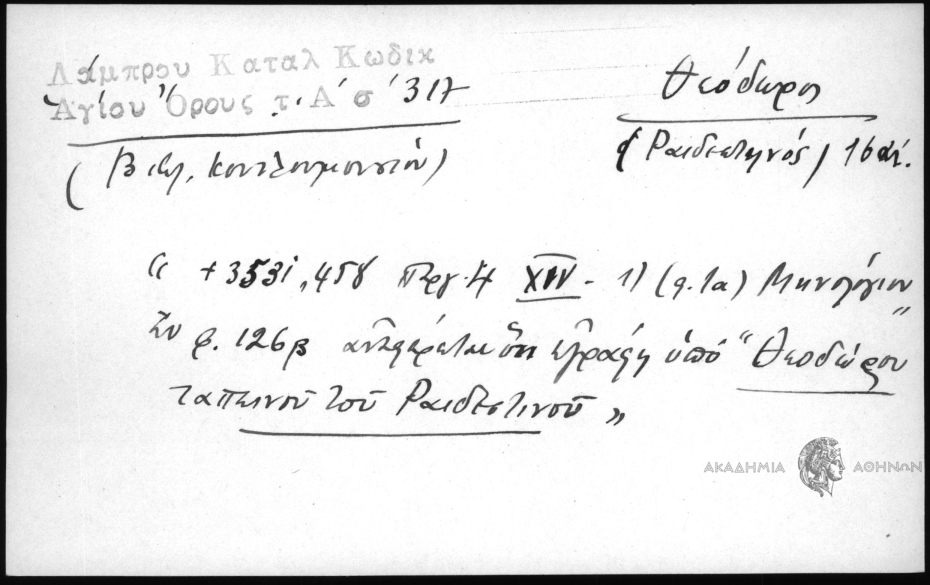 Λάμπρου Καταλ Κωδικ
Αγίου Όρους τ. Α' σ' 317
(Βιβλ. Κουτλουμουσίου)
Θεόδωρος
(Ραιδεστηνός) 16 αι.
“ +3531, 458 Περγ. 4 XIV - 1) (φ. 1α) Μηνολόγιον
Εν φ. 126β αναφέρεται ότι εγράφη υπό “Θεοδώρου
ταπεινού του Ραιδεστινού”
ΑΚΑΔΗΜΙΑ ΑΘΗΝΩΝ